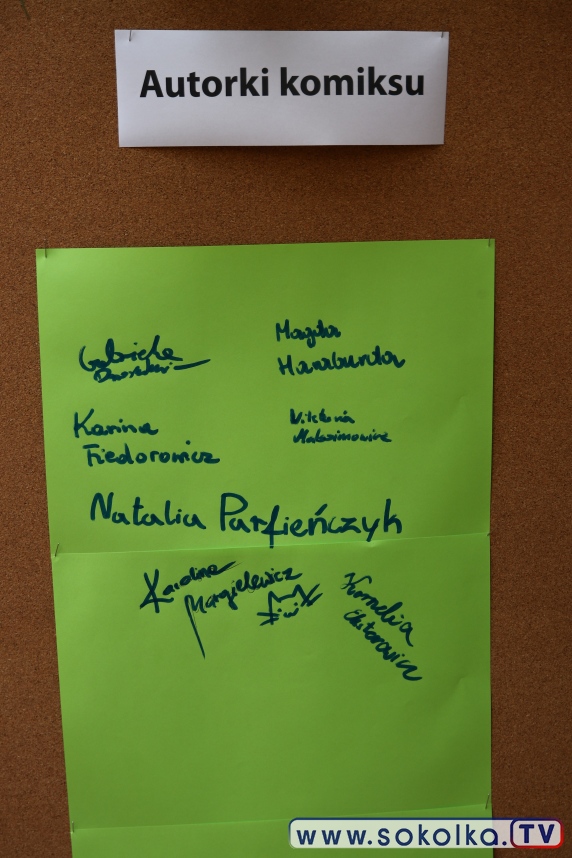 Autorki komiksu
Gabriela
Magda
Haraburda
Karina
Fiedorowicz
Wiktoria
Natalia Parfieńczyk
Karolina
Margielewicz
Kornelia
www.sokolka.TV